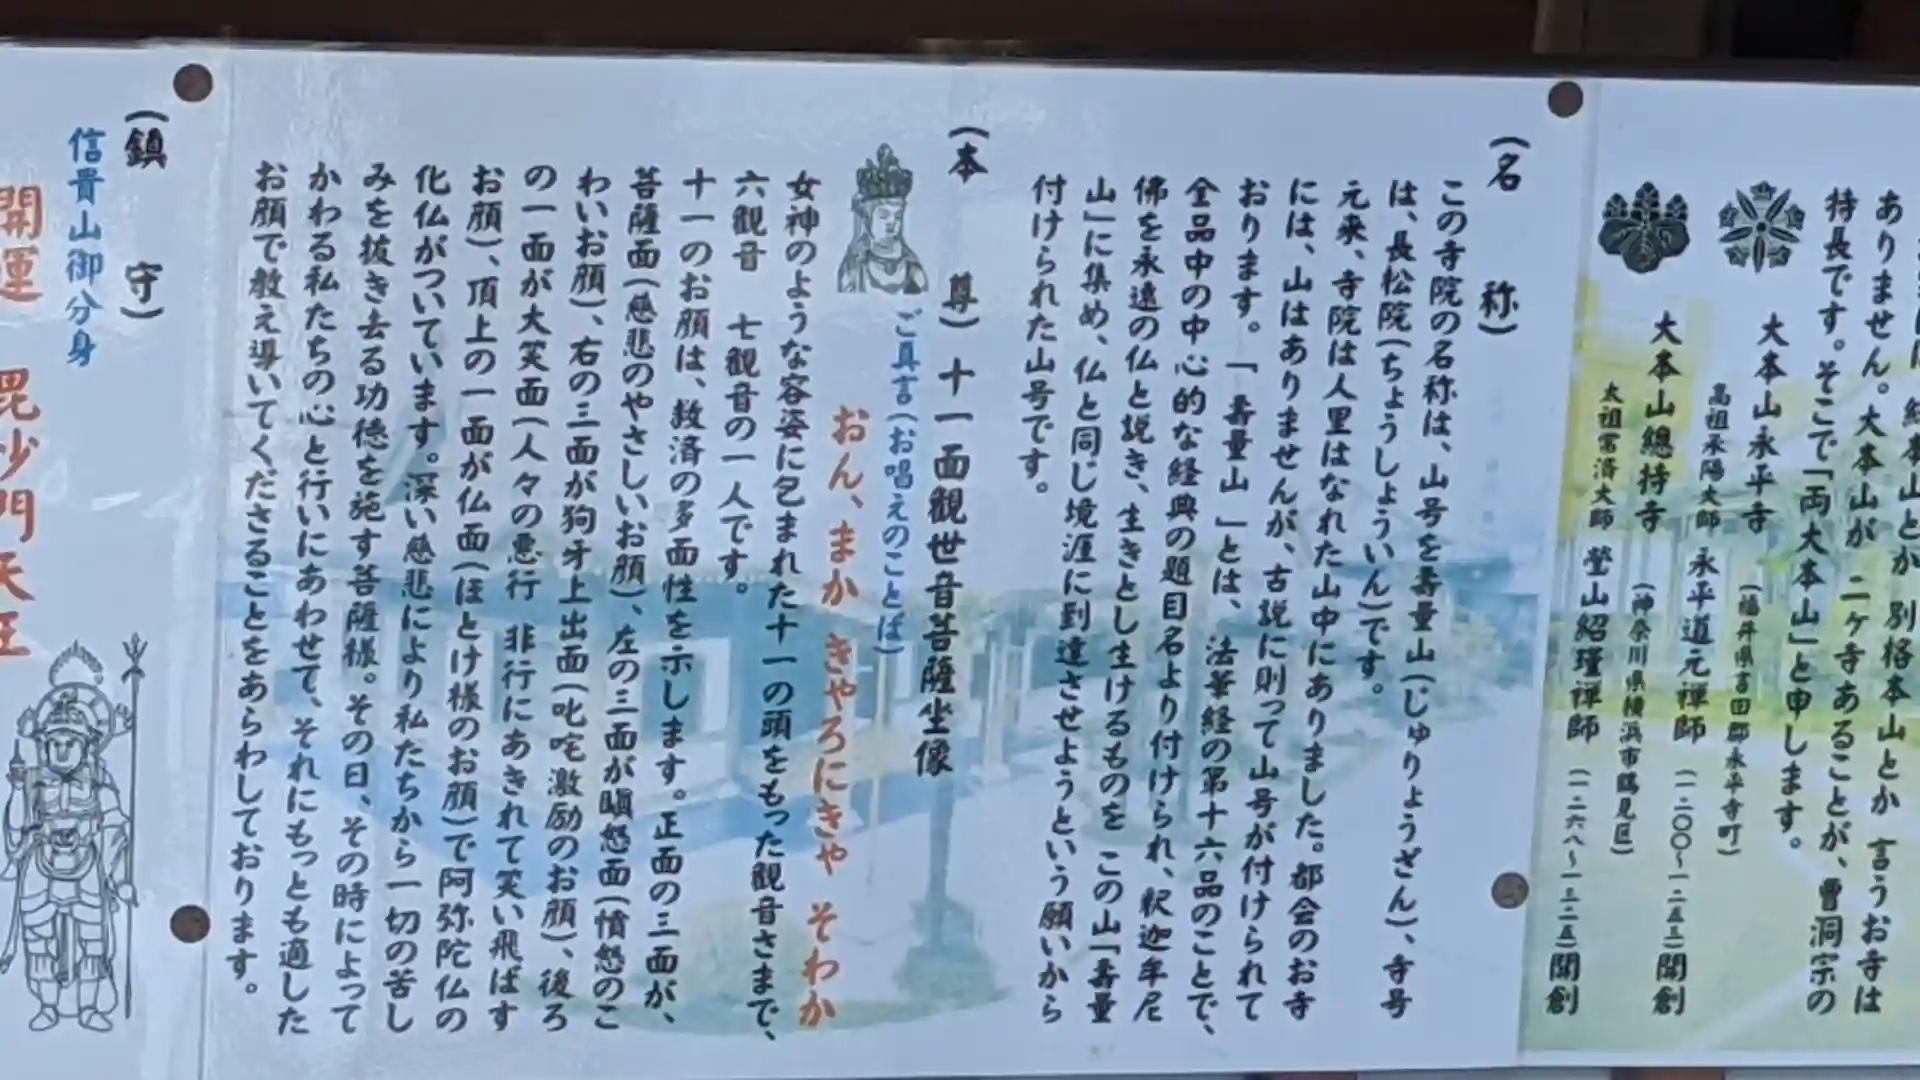 ありません。大本山が 二ヶ寺あることが、曹洞宗の
持長です。そこで「両大本山」と申します。
大本山永平寺
高祖承陽大師 永平道元禅師 (一二〇〇~一二五三)開創
(福井県吉田郡永平寺町)
大本山總持寺
太祖常済大師 瑩山紹瑾禅師 (一二六八~一三二五)開創
(神奈川県横浜市鶴見区)
(名 称)
この寺院の名称は、山号を壽量山(じゅりょうざん)、寺号
は、長松院(ちょうしょういん)です。
元来、寺院は人里はなれた山中にありました。都会のお寺
には、山はありませんが、古説に則って山号が付けられて
おります。「壽量山」とは、法華経の第十六品のことで、
全品中の中心的な経典の題目名より付けられ、釈迦牟尼
佛を永遠の仏と説き、生きとし生けるものを この山「壽量
山」に集め、仏と同じ境涯に到達させようという願いから
付けられた山号です。
(本 尊)十一面観世音菩薩坐像
ご真言(お唱えのことば)
おん、まか きゃろにきゃ そわか
女神のような容姿に包まれた十一の頭をもった観音さまで、
六観音 七観音の一人です。
十一のお顔は、救済の多面性を示します。正面の三面が、
菩薩面(慈悲のやさしいお顔)、左の三面が瞋怒面(憤怒のこ
わいお顔)、右の三面が狗牙上出面(叱咤激励のお顔)、後ろ
の一面が大笑面(人々の悪行 非行にあきれて笑い飛ばす
お顔)、頂上の一面が仏面(ほとけ様のお顔)で阿弥陀仏の
化仏がついています。深い慈悲により私たちから一切の苦し
みを抜き去る功徳を施す菩薩様。その日、その時によって
かわる私たちの心と行いにあわせて、それにもっとも適した
お顔で教え導いてくださることをあらわしております。
(鎮 守)
信貴山御分身
開運 毘沙門天王